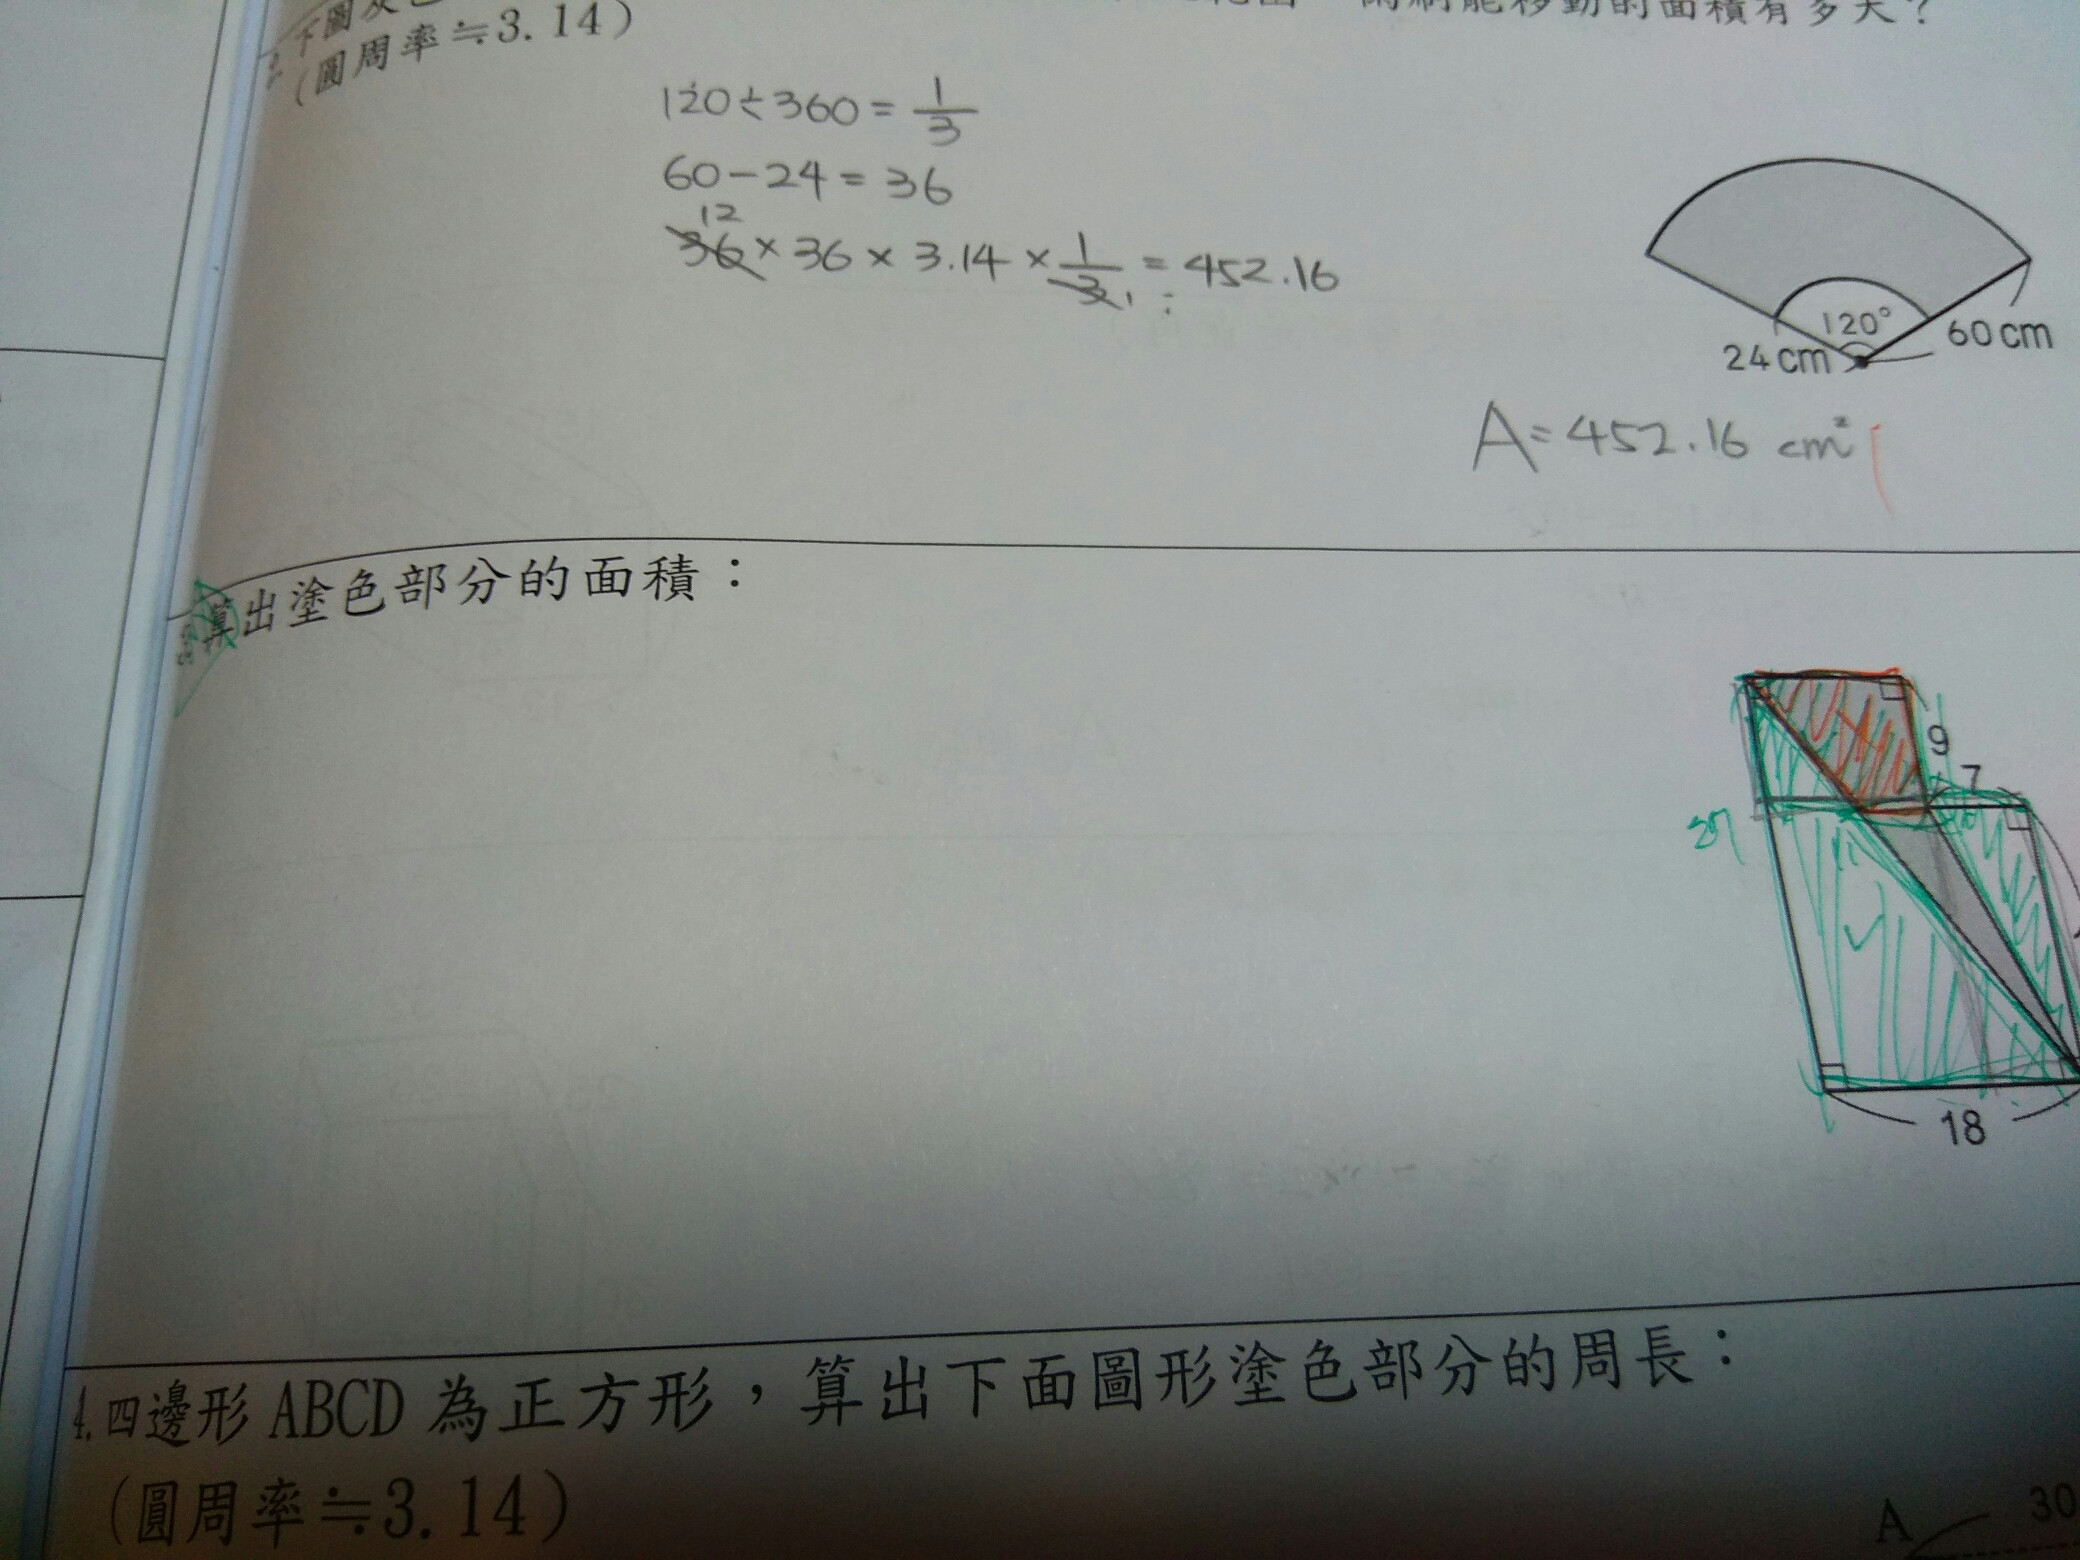 能移動的面積有多大？
(圓周率≒3.14)
120÷360=1/3
60-24=36
12
36×36×3.14×1/3=452.16
1
120°
24cm
60cm
A=452.16 cm²
3.算出塗色部分的面積：
9
7
18
4.四邊形ABCD為正方形，算出下面圖形塗色部分的周長：
(圓周率≒3.14)
A
30